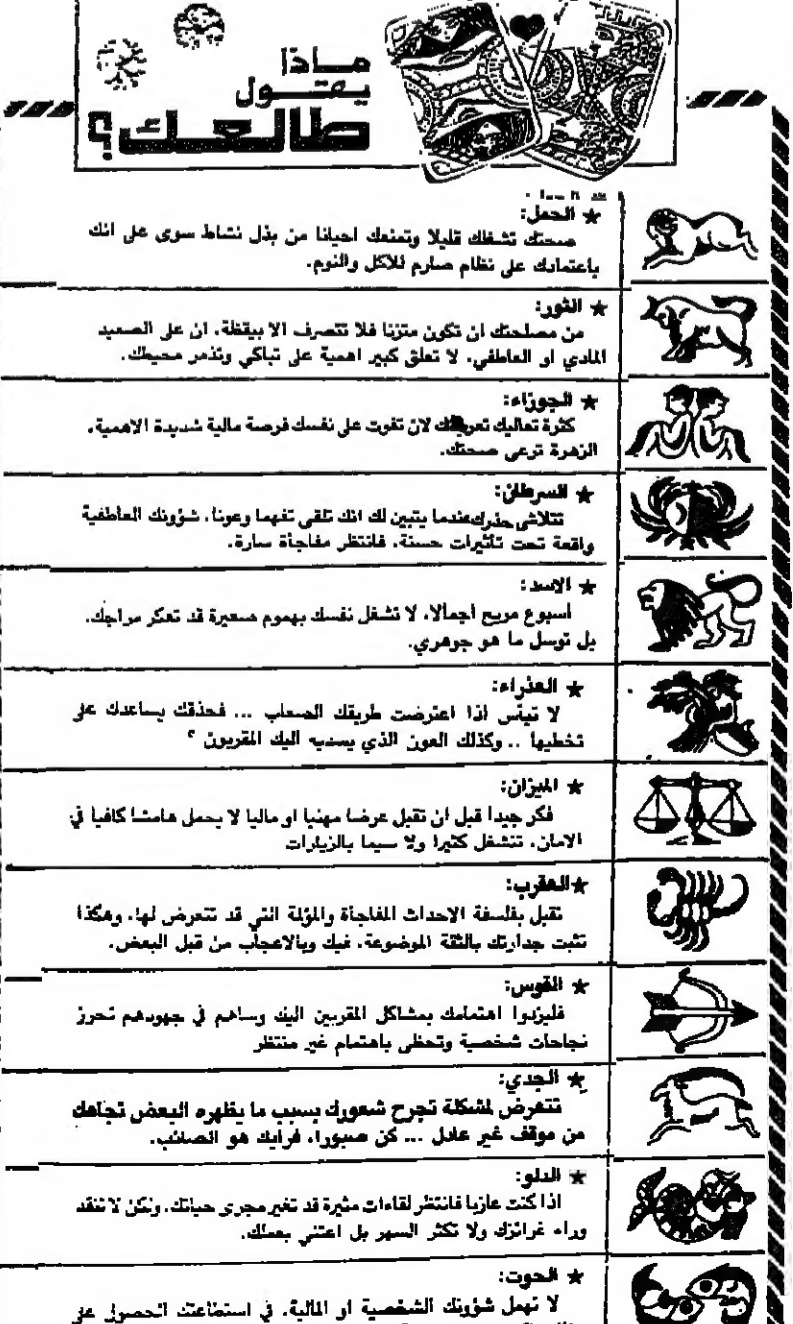 ماذا
يقول
طالعك؟
★ الحمل:
صحتك تشغلك قليلا وتمنعك احيانا من بذل نشاط سوى على انك
باعتمادك على نظام صارم للاكل والنوم.
★ الثور:
من مصلحتك ان تكون متزنا فلا تتصرف الا بيقظة، ان على الصعيد
المادي او العاطفي. لا تعلق كبير اهمية على تباكي وتذمر محيطك.
★ الجوزاء:
كثرة تعاليك تعرضك لان تفوت على نفسك فرصة مالية شديدة الاهمية.
الزهرة ترعى صحتك.
★ السرطان:
تتلاشى حذرك عندما يتبين لك انك تلقى تفهما وعونا. شؤونك العاطفية
واقعة تحت تأثيرات حسنة. فانتظر مفاجأة سارة.
★ الاسد:
اسبوع مريح اجمالا. لا تشغل نفسك بهموم صغيرة قد تعكر مزاجك.
بل توسل ما هو جوهري.
★ العذراء:
لا تيأس اذا اعترضت طريقك الصعاب ... فحذقك يساعدك على
تخطيها .. وكذلك العون الذي يسديه اليك المقربون
★ الميزان:
فكر جيدا قبل ان تقبل عرضا مهنيا او ماليا لا يحمل هامشا كافيا في
الامان. تنشغل كثيرا ولا سيما بالزيارات
★ العقرب:
تقبل بفلسفة الاحداث المفاجأة والمؤلمة التي قد تتعرض لها. وهكذا
تثبت جدارتك بالثقة الموضوعة. فيك وبالاعجاب من قبل البعض.
★ القوس:
فليزدوا اهتمامك بمشاكل المقربين اليك وساهم في جهودهم تحرز
نجاحات شخصية وتحظى باهتمام غير منتظر
★ الجدي:
تتعرض لمشكلة تجرح شعورك بسبب ما يظهره البعض تجاهك
من موقف غير عادل ... كن صبورا، فرأيك هو الصائب.
★ الدلو:
اذا كنت عازبا فانتظر لقاءات مثيرة قد تغير مجرى حياتك. ولكن لا تنقد
وراء غرائزك ولا تكثر السهر بل اعتني بعملك.
★ الحوت:
لا تهمل شؤونك الشخصية او المالية. في استطاعتك الحصول على